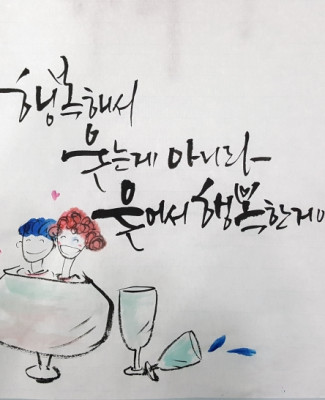 행복해서
웃는게 아니라
웃어서 행복한게